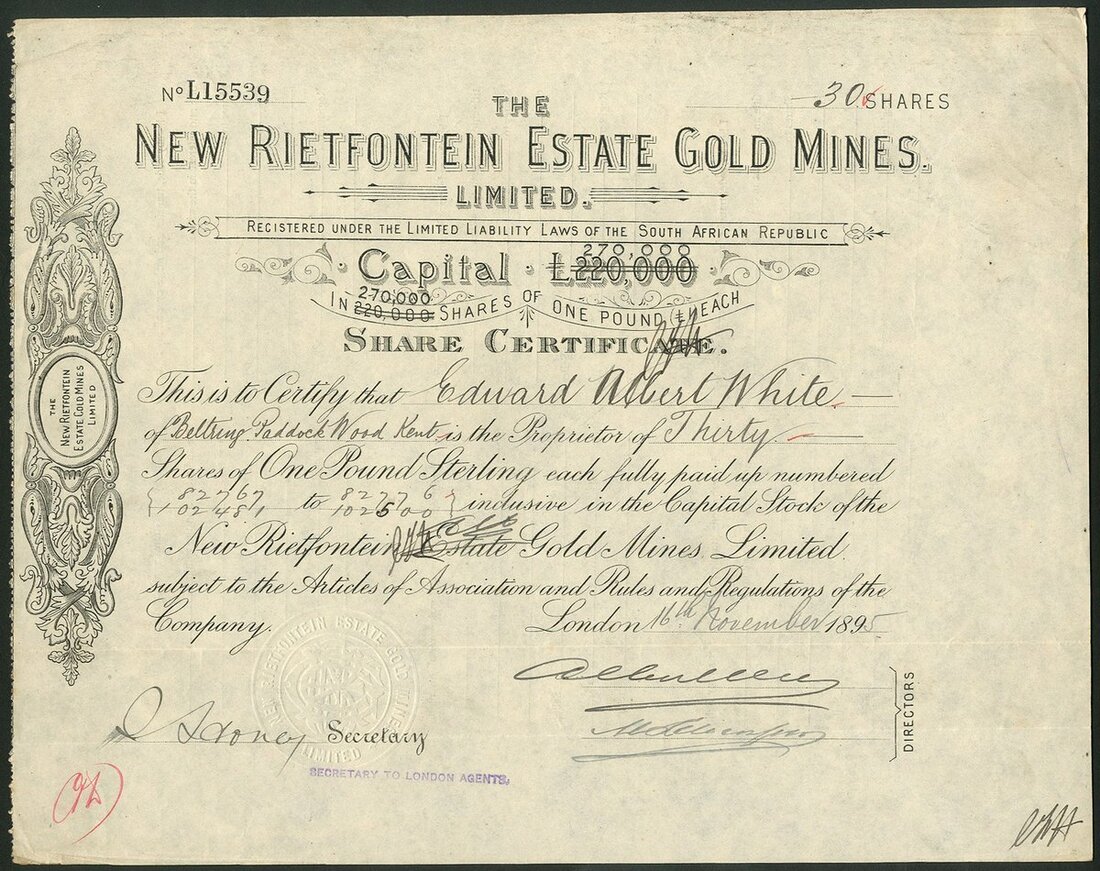 No L15539
30 SHARES
THE
NEW RIETFONTEIN ESTATE GOLD MINES.
LIMITED.
REGISTERED UNDER THE LIMITED LIABILITY LAWS OF THE SOUTH AFRICAN REPUBLIC
270,000
Capital £220,000
270,000
IN 220,000 SHARES OF ONE POUND (£1) EACH
SHARE CERTIFICATE.
This is to Certify that Edward Albert White
of Beltring Paddock Wood Kent is the Proprietor of Thirty
Shares of One Pound Sterling each fully paid up numbered
82767 to 82776
102481 102500 inclusive in the Capital Stock of the
New Rietfontein Estate Gold Mines Limited
subject to the Articles of Association and Rules and Regulations of the
Company. London 16th November 1895
DIRECTORS
Secretary
SECRETARY TO LONDON AGENTS.
THE
NEW RIETFONTEIN
ESTATE GOLD MINES
LIMITED
NEW RIETFONTEIN ESTATE GOLD MINES
LIMITED